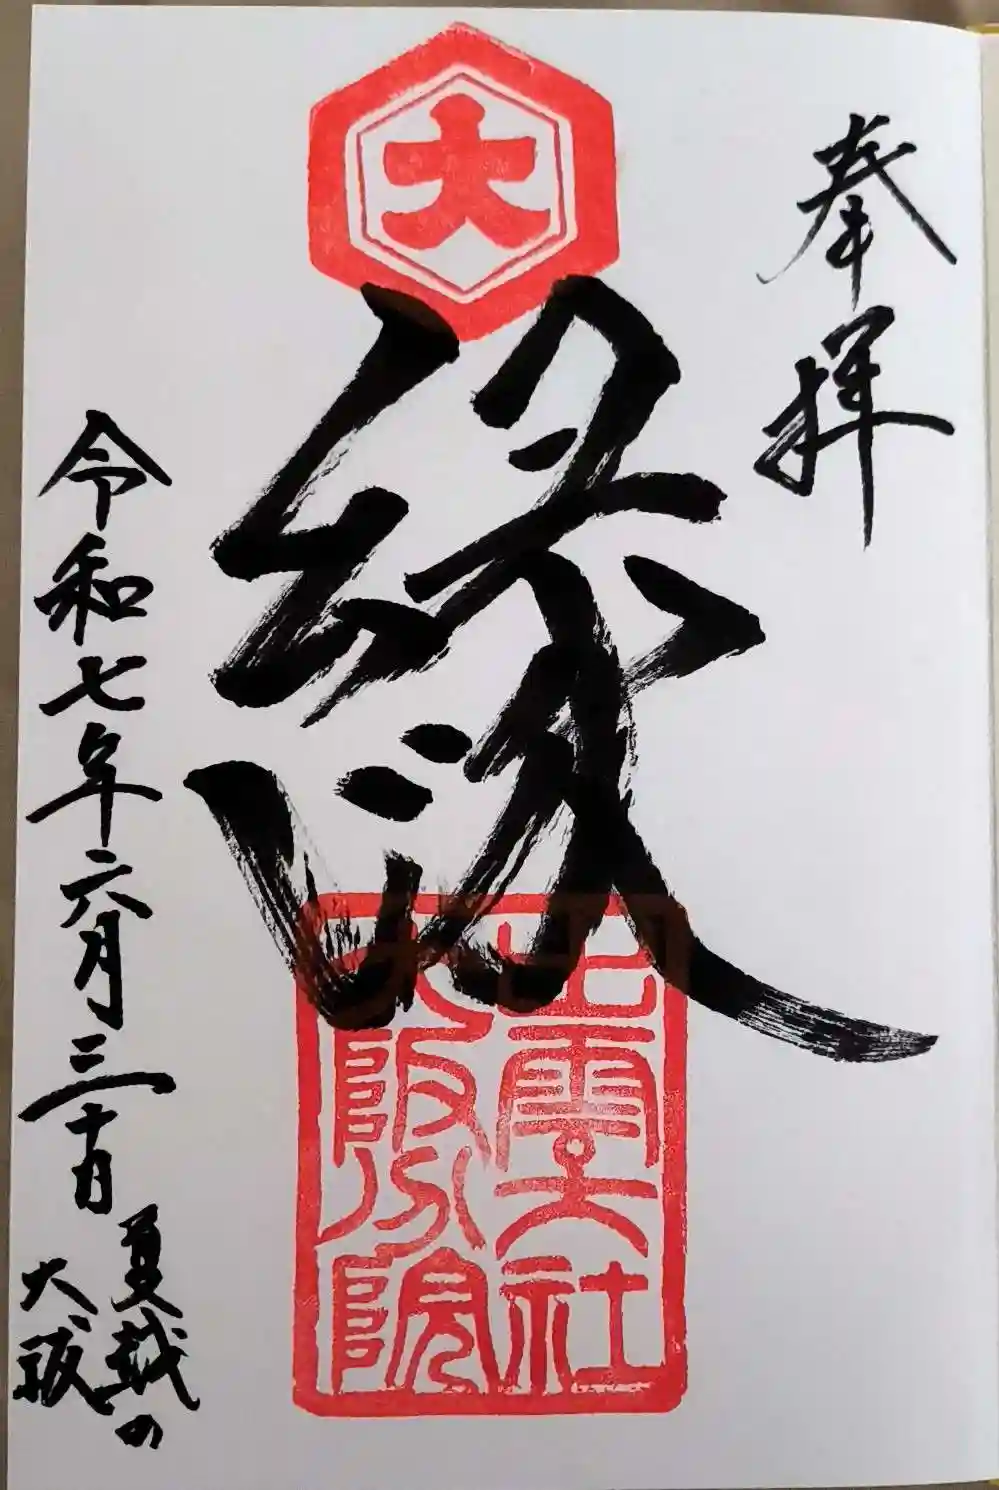 奉拝
大
縁
出雲大社
大阪分院
令和七年六月三十日
夏越の
大祓